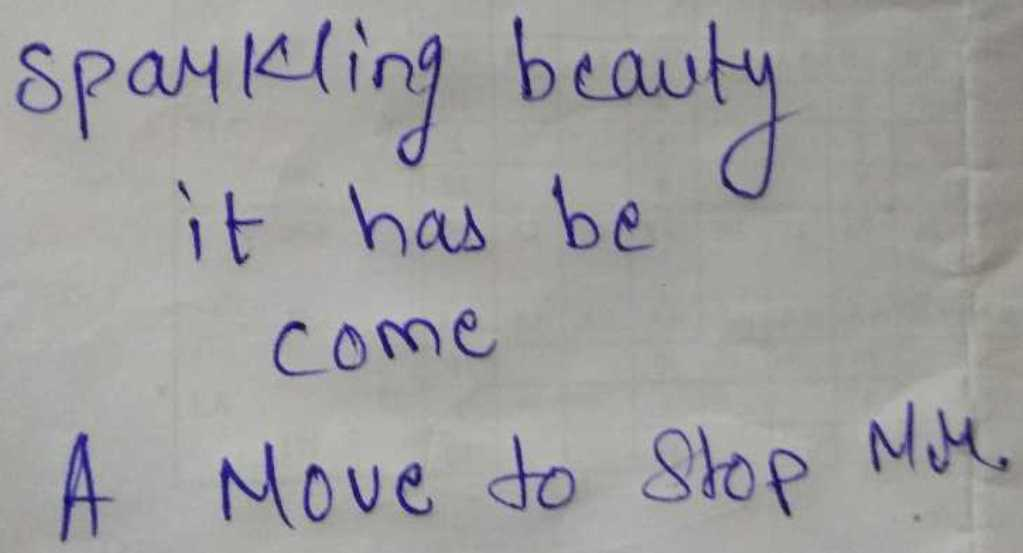 Sparkling beauty
it has be
come
A Move to Stop